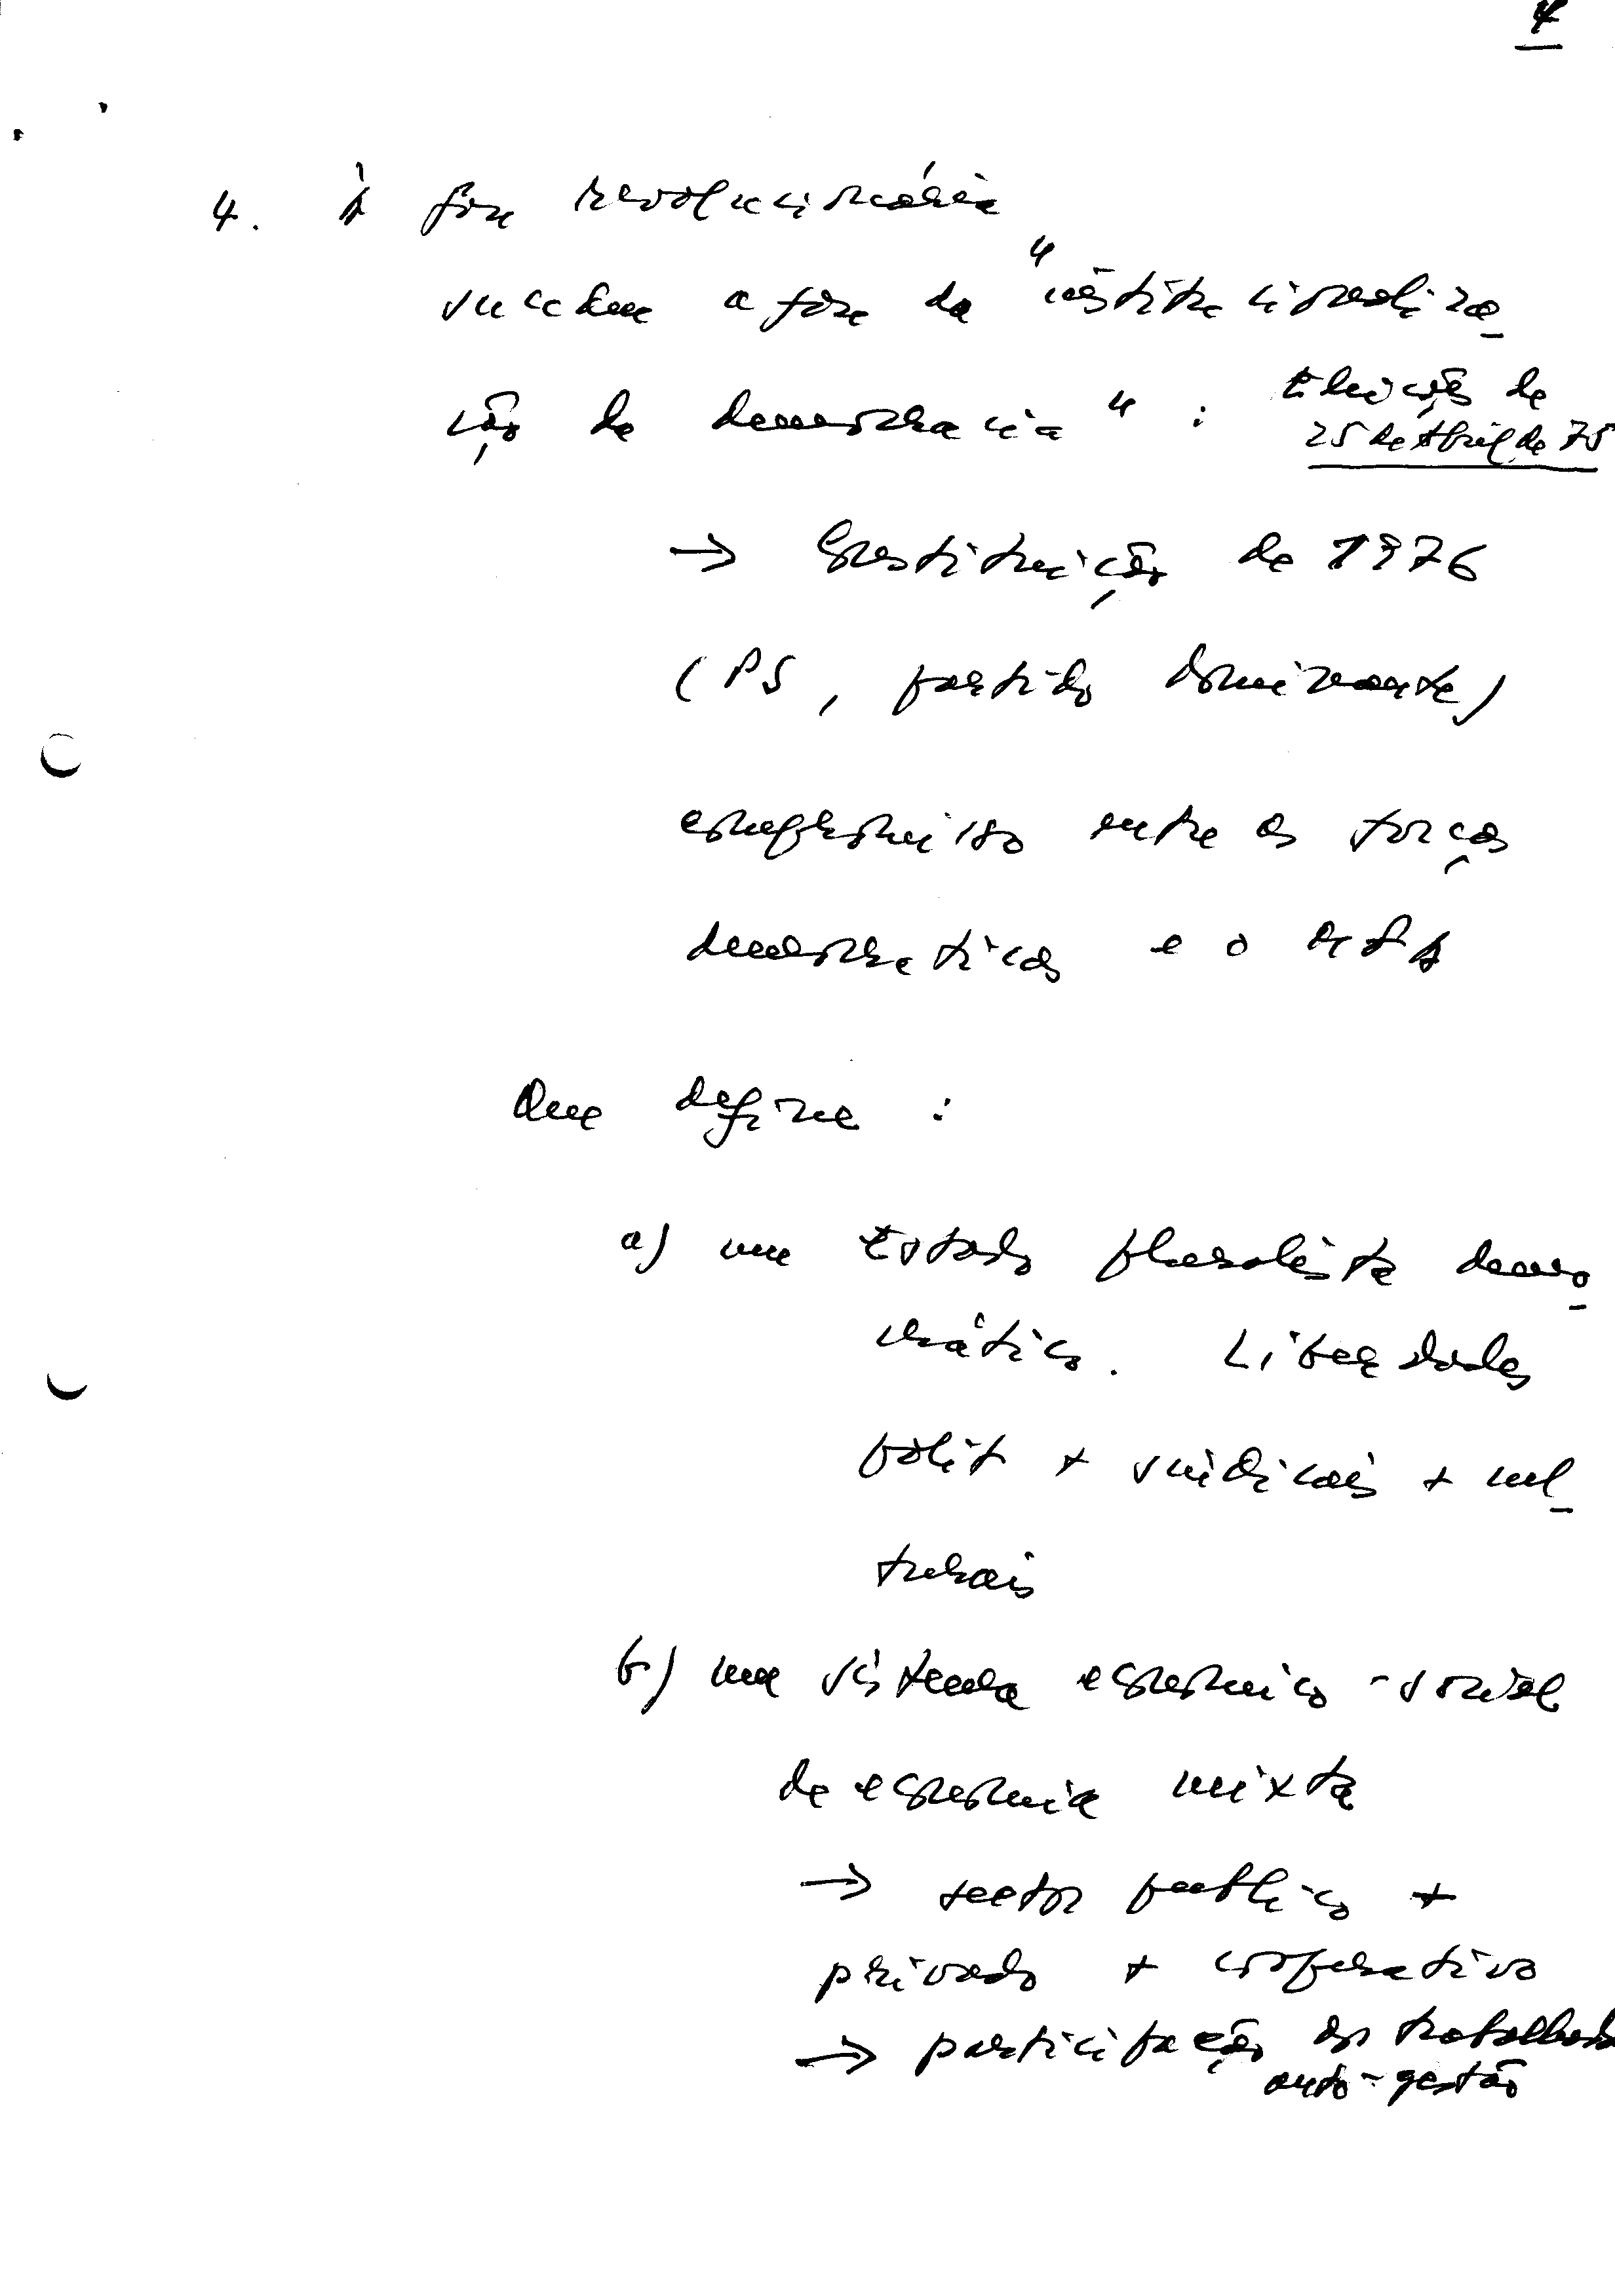 4
4. À fase revolucionária
sucedeu a fase da "institucionaliza-
ção da democracia" : Eleições de
25 de Abril de 75
→ Constituição de 1976
(PS, partido dominante)
compromisso entre as forças
democráticas e o MFA
Que define :
a) um Estado pluralista demo-
crático. Liberdades
polit + sindicais + cul-
turais
b) um sistema económico-social
de economia mixta
→ sector publico +
privado + cooperativo
→ participação dos trabalhad
auto-gestão